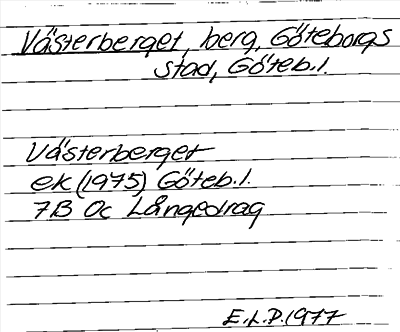 Västerberget, berg, Göteborgs
stad, Göteb.l.
Västerberget
ek (1975) Göteb.l.
7B 0c Långedrag
E.L.P. 1977